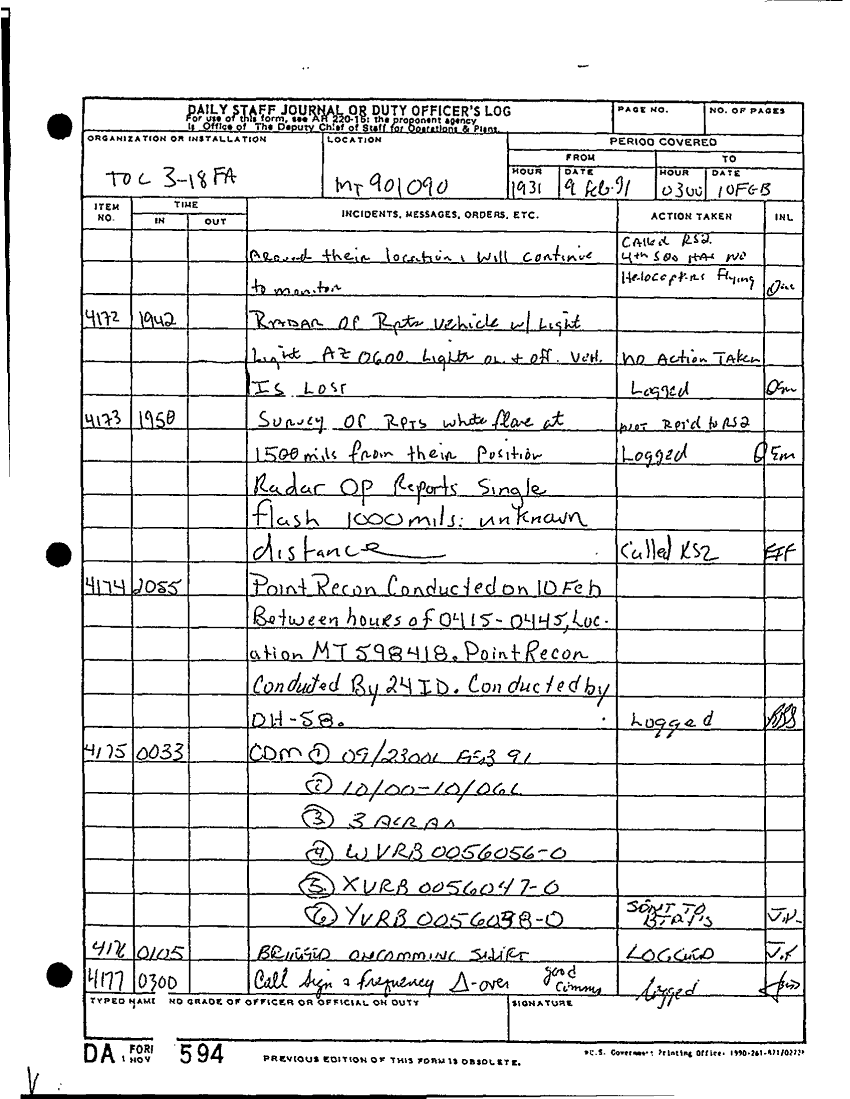 DAILY STAFF JOURNAL OR DUTY OFFICER'S LOG
For use of this form, see AR 220-15; the proponent agency
is Office of The Deputy Chief of Staff for Operations & Plans.
PAGE NO.
NO. OF PAGES
ORGANIZATION OR INSTALLATION
TOC 3-18FA
LOCATION
MT 901090
PERIOD COVERED
FROM
TO
HOUR
1931
DATE
9 Feb 91
HOUR
0300
DATE
10FEB
ITEM NO.
TIME
IN
OUT
INCIDENTS, MESSAGES, ORDERS, ETC.
ACTION TAKEN
INL
around their location, will continue
to monitor
CAlled RS2.
4th HAS NO
Helocopters Flying
4172 1942 RADAR OP Rpts vehicle w/ Light
Light AZ 0600. Lights on + off. Veh. NO Action TAKen
IS LOST Logged
4173 1950 Survey OP RPTS white flare at NOT Rptd to RS2
1500 mils from their Position Logged
Radar OP Reports Single
flash 1000 mils: unknown
distance Called RS2
4174 2055 Point Recon Conducted on 10 Feb
Between hours of 0415-0445, Loc-
ation MT 598418. Point Recon
Conduted By 24 ID. Conducted by
OH-58. Logged
4175 0033 CDM ① 09/2300L FEB 91
② 10/00-10/06L
③ 3 ACR AA
④ WVRB 0056056-0
⑤ XVRB 0056047-0
⑥ YVRB 0056038-0 SENT TO
BTRY'S
4176 0105 BRIEFED ONCOMMING SHIFT LOGGED
4177 0300 Call Sign & frequency Δ-over good
Comms logged
TYPED NAME ND GRADE OF OFFICER OR OFFICIAL ON DUTY
SIGNATURE
DA FORM 1 NOV 594
PREVIOUS EDITION OF THIS FORM IS OBSOLETE.
*U.S. Government Printing Office: 1990-261-871/0272*